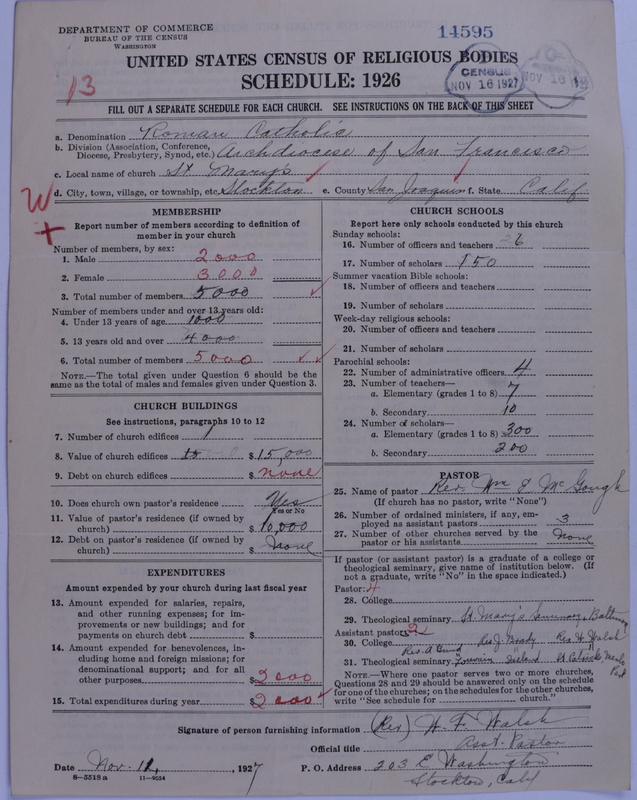 DEPARTMENT OF COMMERCE
BUREAU OF THE CENSUS
WASHINGTON
14595
UNITED STATES CENSUS OF RELIGIOUS BODIES
SCHEDULE: 1926
13
CENSUS
NOV 16 1927
NOV 16
FILL OUT A SEPARATE SCHEDULE FOR EACH CHURCH. SEE INSTRUCTIONS ON THE BACK OF THIS SHEET
a. Denomination Roman Catholic
b. Division (Association, Conference, Diocese, Presbytery, Synod, etc.) Archdiocese of San Francisco
c. Local name of church St Marys
d. City, town, village, or township, etc. Stockton e. County San Joaquin f. State Calif
W
MEMBERSHIP
Report number of members according to definition of
member in your church
Number of members, by sex:
1. Male 2000
2. Female 3000
3. Total number of members 5000
Number of members under and over 13 years old:
4. Under 13 years of age 1000
5. 13 years old and over 4000
6. Total number of members 5000
NOTE.—The total given under Question 6 should be
same as the total of males and females given under Question 3.
CHURCH BUILDINGS
See instructions, paragraphs 10 to 12
7. Number of church edifices 1
8. Value of church edifices $ 15,000
9. Debt on church edifices $ none
10. Does church own pastor's residence Yes
Yes or No
11. Value of pastor's residence (if owned by
church) $ 10,000
12. Debt on pastor's residence (if owned by
church) $ None
EXPENDITURES
Amount expended by your church during last fiscal year
13. Amount expended for salaries, repairs,
and other running expenses; for im-
provements or new buildings; and for
payments on church debt $
14. Amount expended for benevolences, in-
cluding home and foreign missions; for
denominational support; and for all
other purposes $ 2000
15. Total expenditures during year $ 2000
CHURCH SCHOOLS
Report here only schools conducted by this church
Sunday schools:
16. Number of officers and teachers 26
17. Number of scholars 150
Summer vacation Bible schools:
18. Number of officers and teachers
19. Number of scholars
Week-day religious schools:
20. Number of officers and teachers
21. Number of scholars
Parochial schools:
22. Number of administrative officers 4
23. Number of teachers—
a. Elementary (grades 1 to 8) 7
b. Secondary 10
24. Number of scholars—
a. Elementary (grades 1 to 8) 300
b. Secondary 200
PASTOR
25. Name of pastor Rev. Wm E McGough
(If church has no pastor, write "None")
26. Number of ordained ministers, if any, em-
ployed as assistant pastors 3
27. Number of other churches served by the
pastor or his assistants None
If pastor (or assistant pastor) is a graduate of a college or
theological seminary, give name of institution below. (If
not a graduate, write "No" in the space indicated.)
Pastor:
28. College
29. Theological seminary St Mary's Seminary, Baltimore
Assistant pastor: 2
30. College Rev J. Rev H Walsh
Rev A
31. Theological seminary Louvain Ireland St Patricks Menlo
Park
NOTE.—Where one pastor serves two or more churches,
Questions 28 and 29 should be answered only on the schedule
for one of the churches; on the schedules for the other churches,
write "See schedule for church."
Signature of person furnishing information (Rev) H. F. Walsh
Official title Asst. Pastor
Date Nov. 11, 1927 P. O. Address 203 E Washington
Stockton, Calif
8—5518a 11—9554